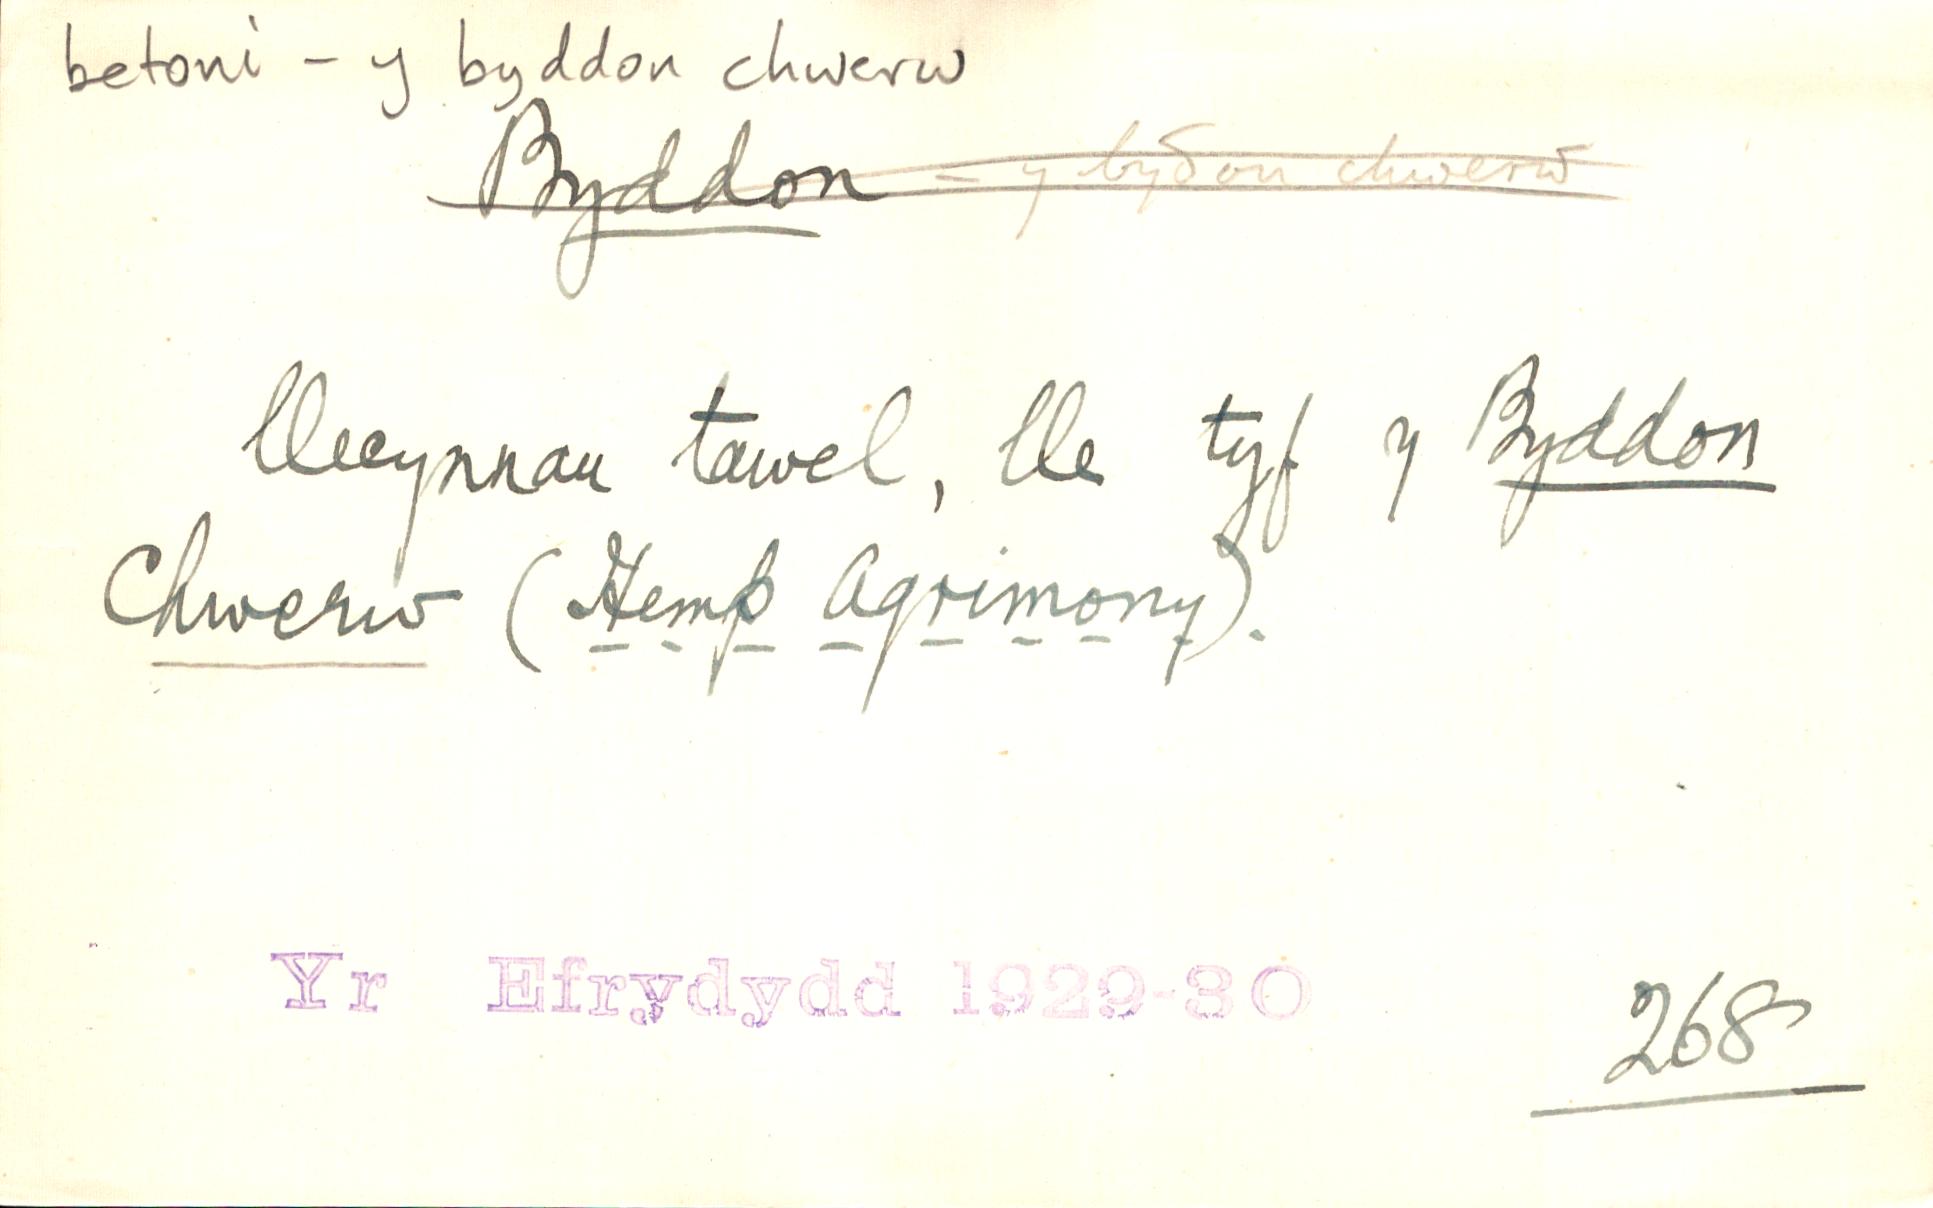 betoni - y byddon chwerw
Byddon - y byδon chwerw
llecynnau tawel, lle tyf y Byddon
Chwerw (Hemp Agrimony).
Yr Efrydydd 1929-30
268